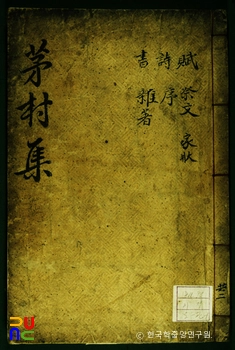 茅村集
賦 祭文 家狀
詩 序
書 雜著
共二
© 한국학중앙연구원